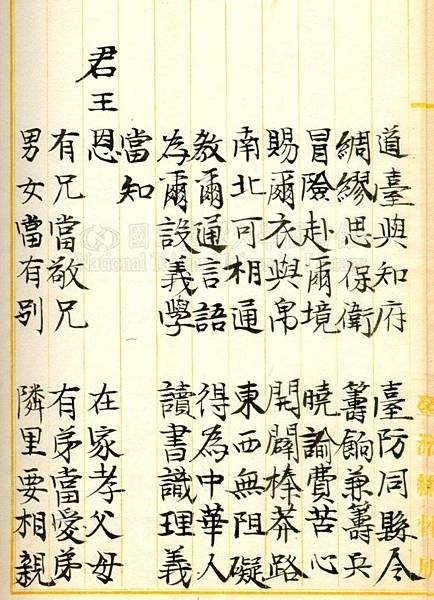 道臺與知府 臺防同縣令
綢繆思保衛 籌餉兼籌兵
冒險赴爾境 曉諭費苦心
賜爾衣與帛 開闢榛莽路
南北可相通 東西無阻礙
教爾通言語 得為中華人
為爾設義學 讀書識理義
當知
君王恩 在家孝父母
有兄當敬兄 有弟當愛弟
男女當有別 隣里要相親
National